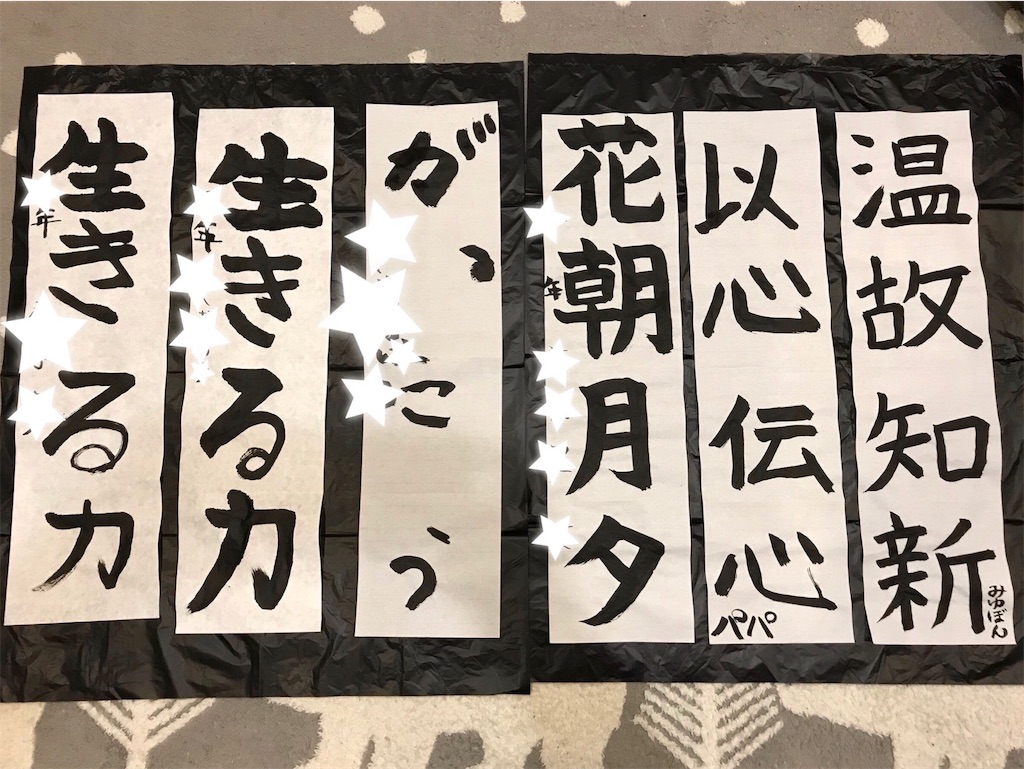 温故知新
みゆぽん
以心伝心
パパ
花朝月夕
年
がっこう
生きる力
年
生きる力
年